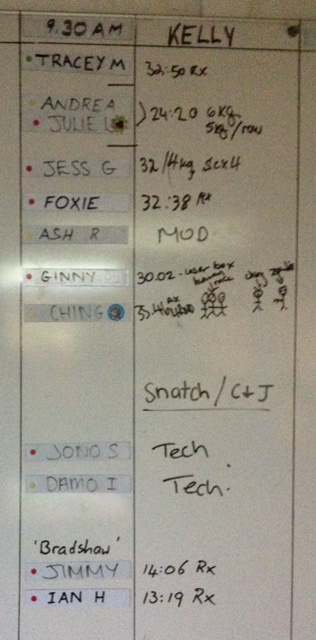 9.30 AM KELLY
TRACEY M 32:50 Rx
ANDREA
JULIE L 24:20 6kg
5kg/row
JESS G 32/4kg
FOXIE 32:38 Rx
ASH R MOD
GINNY 30.02
CHING
Snatch / C+J
JONO S Tech
DAMO I Tech.
'Bradshaw'
JIMMY 14:06 Rx
IAN H 13:19 Rx